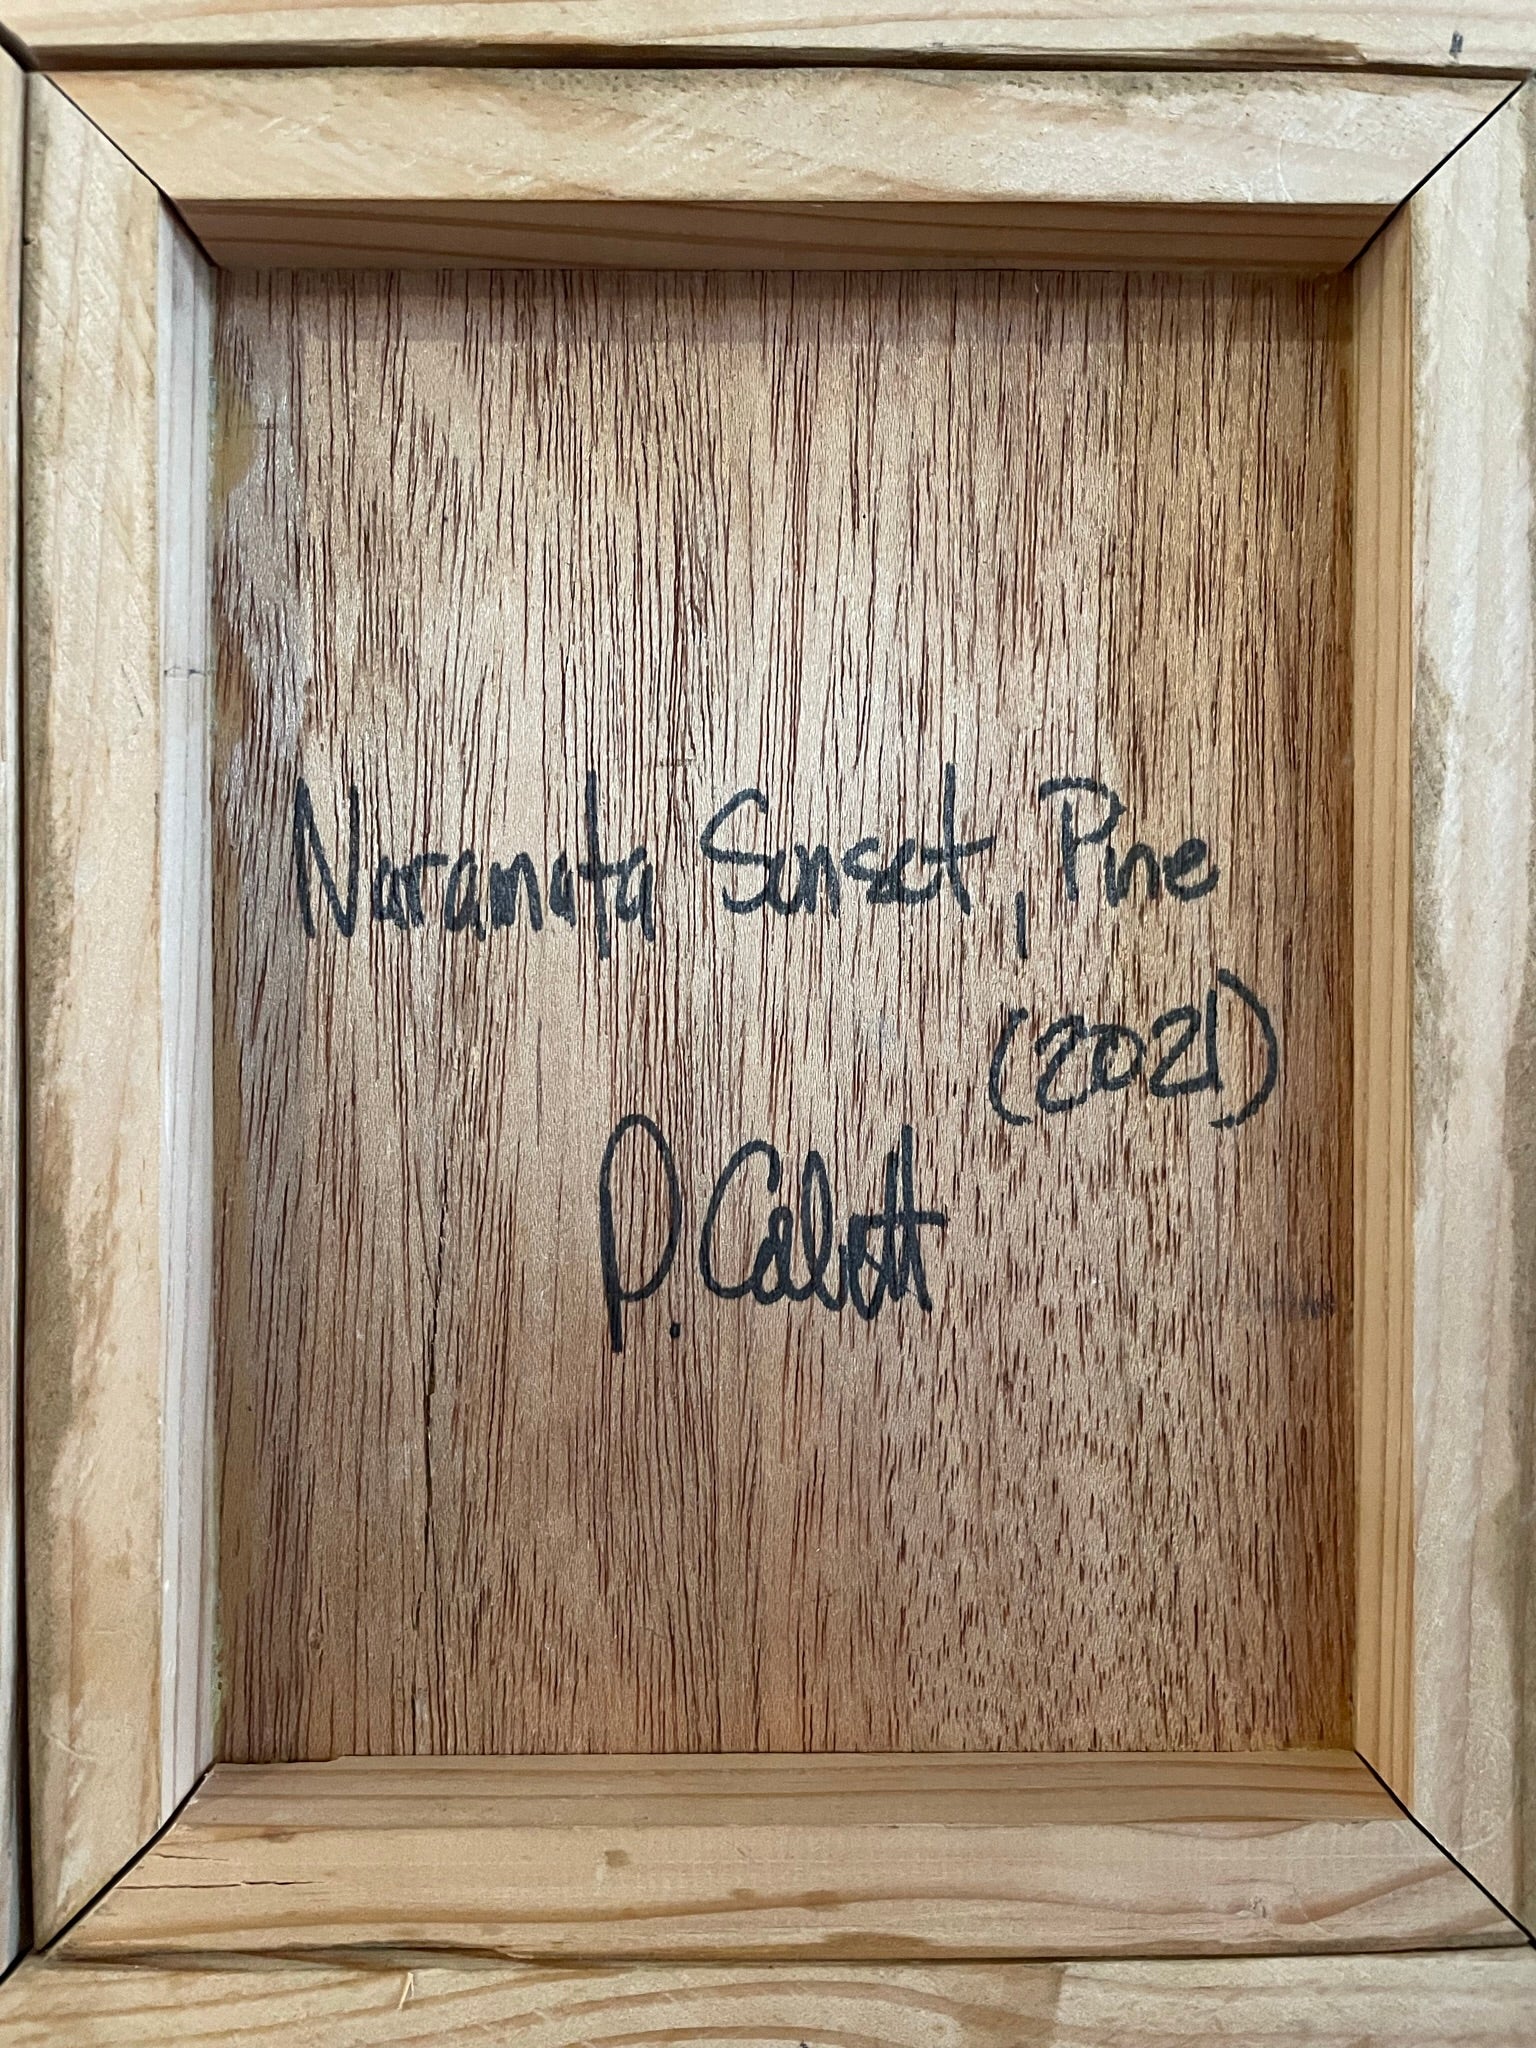 Naramata Sunset, Pine
(2021)
P. Cabott